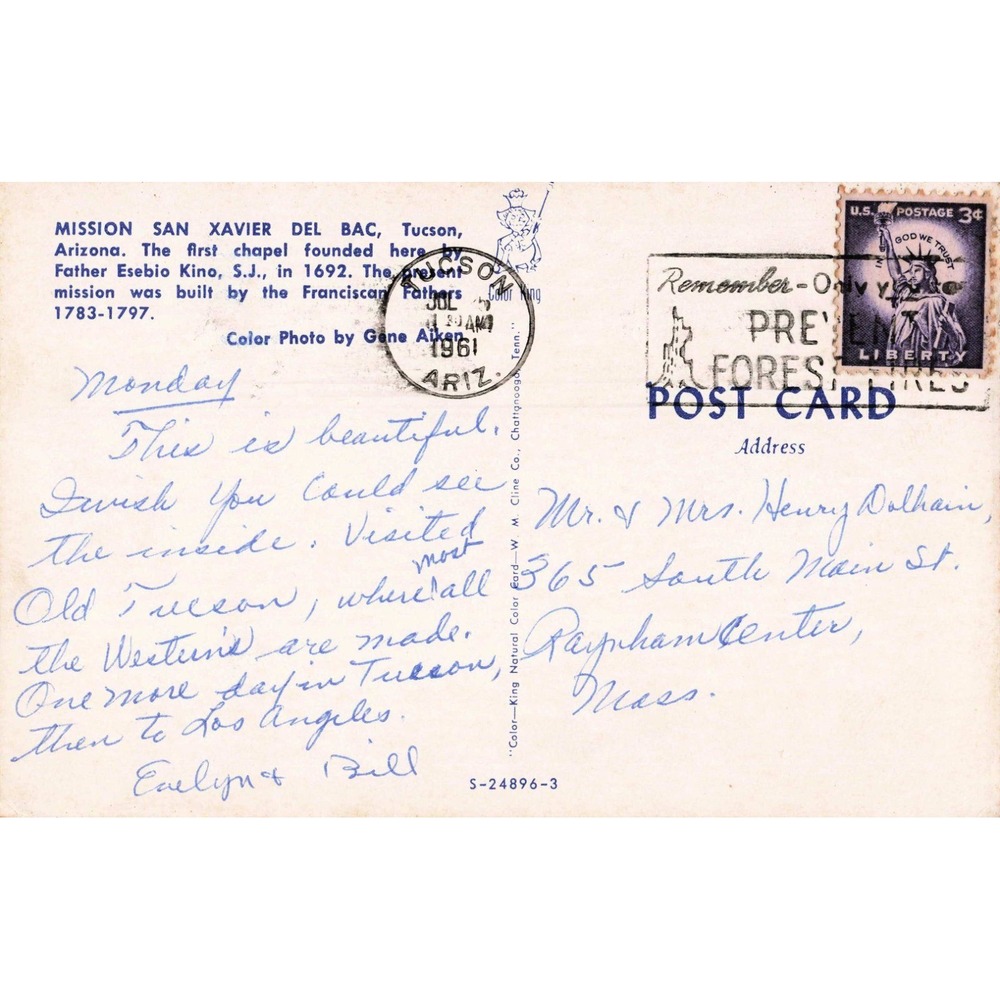 MISSION SAN XAVIER DEL BAC, Tucson,
Arizona. The first chapel founded here by
Father Esebio Kino, S.J., in 1692. The present
mission was built by the Franciscan Fathers
1783-1797.
Color Photo by Gene Aiken
Color King
TUCSON
JUL 5
AM
1961
ARIZ.
Remember-Only
PREVENT
FOREST FIRES
U.S. POSTAGE 3¢
IN GOD WE TRUST
LIBERTY
POST CARD
Address
Monday
This is beautiful.
I wish you could see
the inside. Visited
most
Old Tucson, where all
the Westerns are made.
One more day in Tucson,
then to Los Angeles.
Evelyn & Bill
"Color—King Natural Color Card—W. M. Cline Co., Chattanooga, Tenn."
Mr. & Mrs. Henry Dolhain,
365 South Main St.
Raynham Center,
Mass.
S-24896-3